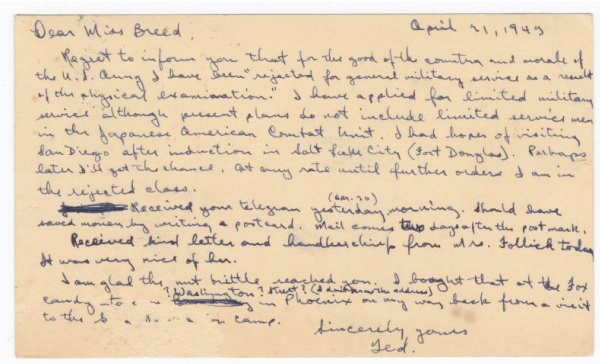 Dear Miss Breed, April 21, 1943
Regret to inform you that for the good of the country and morale of
the U.S. Army I have been "rejected for general military service as a result
of the physical examination." I have applied for limited military
service although present plans do not include limited service men
in the Japanese American Combat Unit. I had hopes of visiting
San Diego after induction in Salt Lake City (Fort Douglas). Perhaps
later I'll get the chance. At any rate until further orders I am in
the rejected class.
Received your telegram yesterday morning. Should have
saved money by writing a postcard. Mail comes two days after the postmark.
Received kind letter and handkerchief from Mrs. Follick today
It was very nice of her.
I am glad the nut brittle reached you. I bought that at the Fox
? Washington? Street? (I don't know the address)
candy in Phoenix on my way back from a visit
to the camp.
Sincerely yours
Ted.